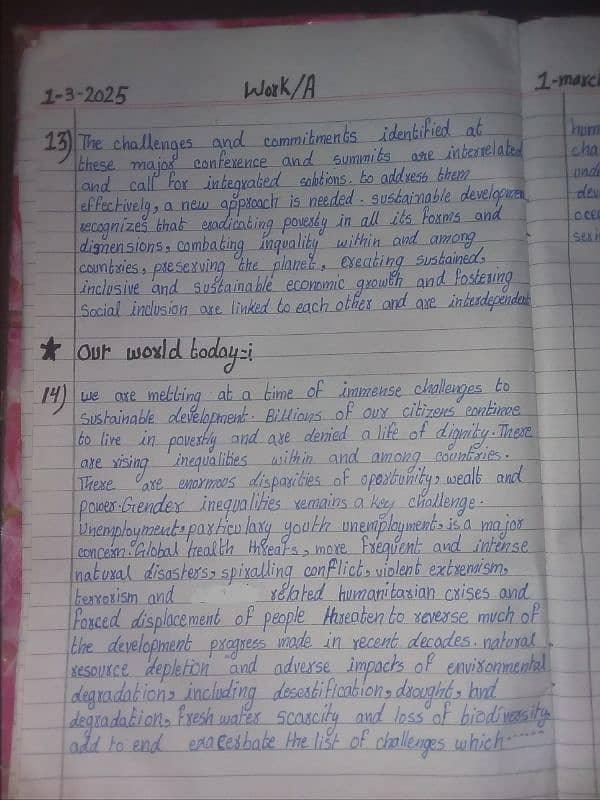 1-3-2025
Work/A
13) The challenges and commitments identified at
these major conference and summits are interrelated
and call for integrated solutions. to address them
effectively, a new approach is needed. sustainable developmen
recognizes that eradicating poverty in all its forms and
dignensions, combating inquality within and among
countries, preserving the planet, creating sustained,
inclusive and sustainable economic growth and fostering
Social inclusion are linked to each other and are interdependent
★ Our world today:-
14) we are metting at a time of immense challenges to
Sustainable development. Billions of our citizens continue
to live in povertly and are denied a life of dignity. There
are rising inequalities within and among countries.
There are enormoos disparities of oportunity, wealt and
power. Gender inequalities remains a key challenge.
Unemployment, particulary youth unemployment, is a major
concern. Global health threats, more frequent and intense
natural disasters, spiralling conflict, violent extremism,
terrorism and related humanitarian crises and
forced displacement of people threaten to reverse much of
the development progress made in recent decades. natural
resource depletion and adverse impacts of environmental
degradation, including desertification, drought, land
degradation, fresh water scarcity and loss of biodiversity,
add to end exacerbate the list of challenges which......
1-march
hum
cha
unde
dev
ocea